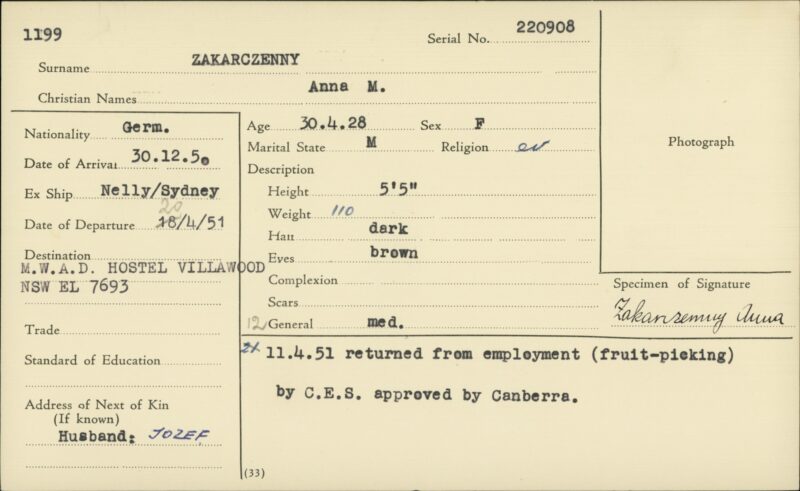 1199
Serial No. 220908
Surname ZAKARCZENNY
Christian Names Anna M.
Nationality Germ.
Date of Arrival 30.12.50
Ex Ship Nelly/Sydney
20
Date of Departure 18/4/51
Destination
M.W.A.D. HOSTEL VILLAWOOD
NSW EL 7693
Trade
Standard of Education
Address of Next of Kin
(If known)
Husband: JOZEF
Age 30.4.28 Sex F
Marital State M Religion ev
Description
Height 5'5"
Weight 110
Hair dark
Eyes brown
Complexion
Scars
12 General med.
Photograph
Specimen of Signature
Zakarszemny Anna
11.4.51 returned from employment (fruit-picking)
by C.E.S. approved by Canberra.
(33)